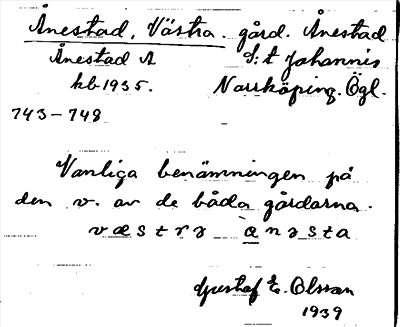 Ånestad, Västra. gård. Ånestad
Ånestad A S:t Johannis
kb 1935. Norrköping. Ögl.
743-748
Vanliga benämningen på
den v. av de båda gårdarna.
væstrə ànəsta
Gustaf E. Olsson
1939